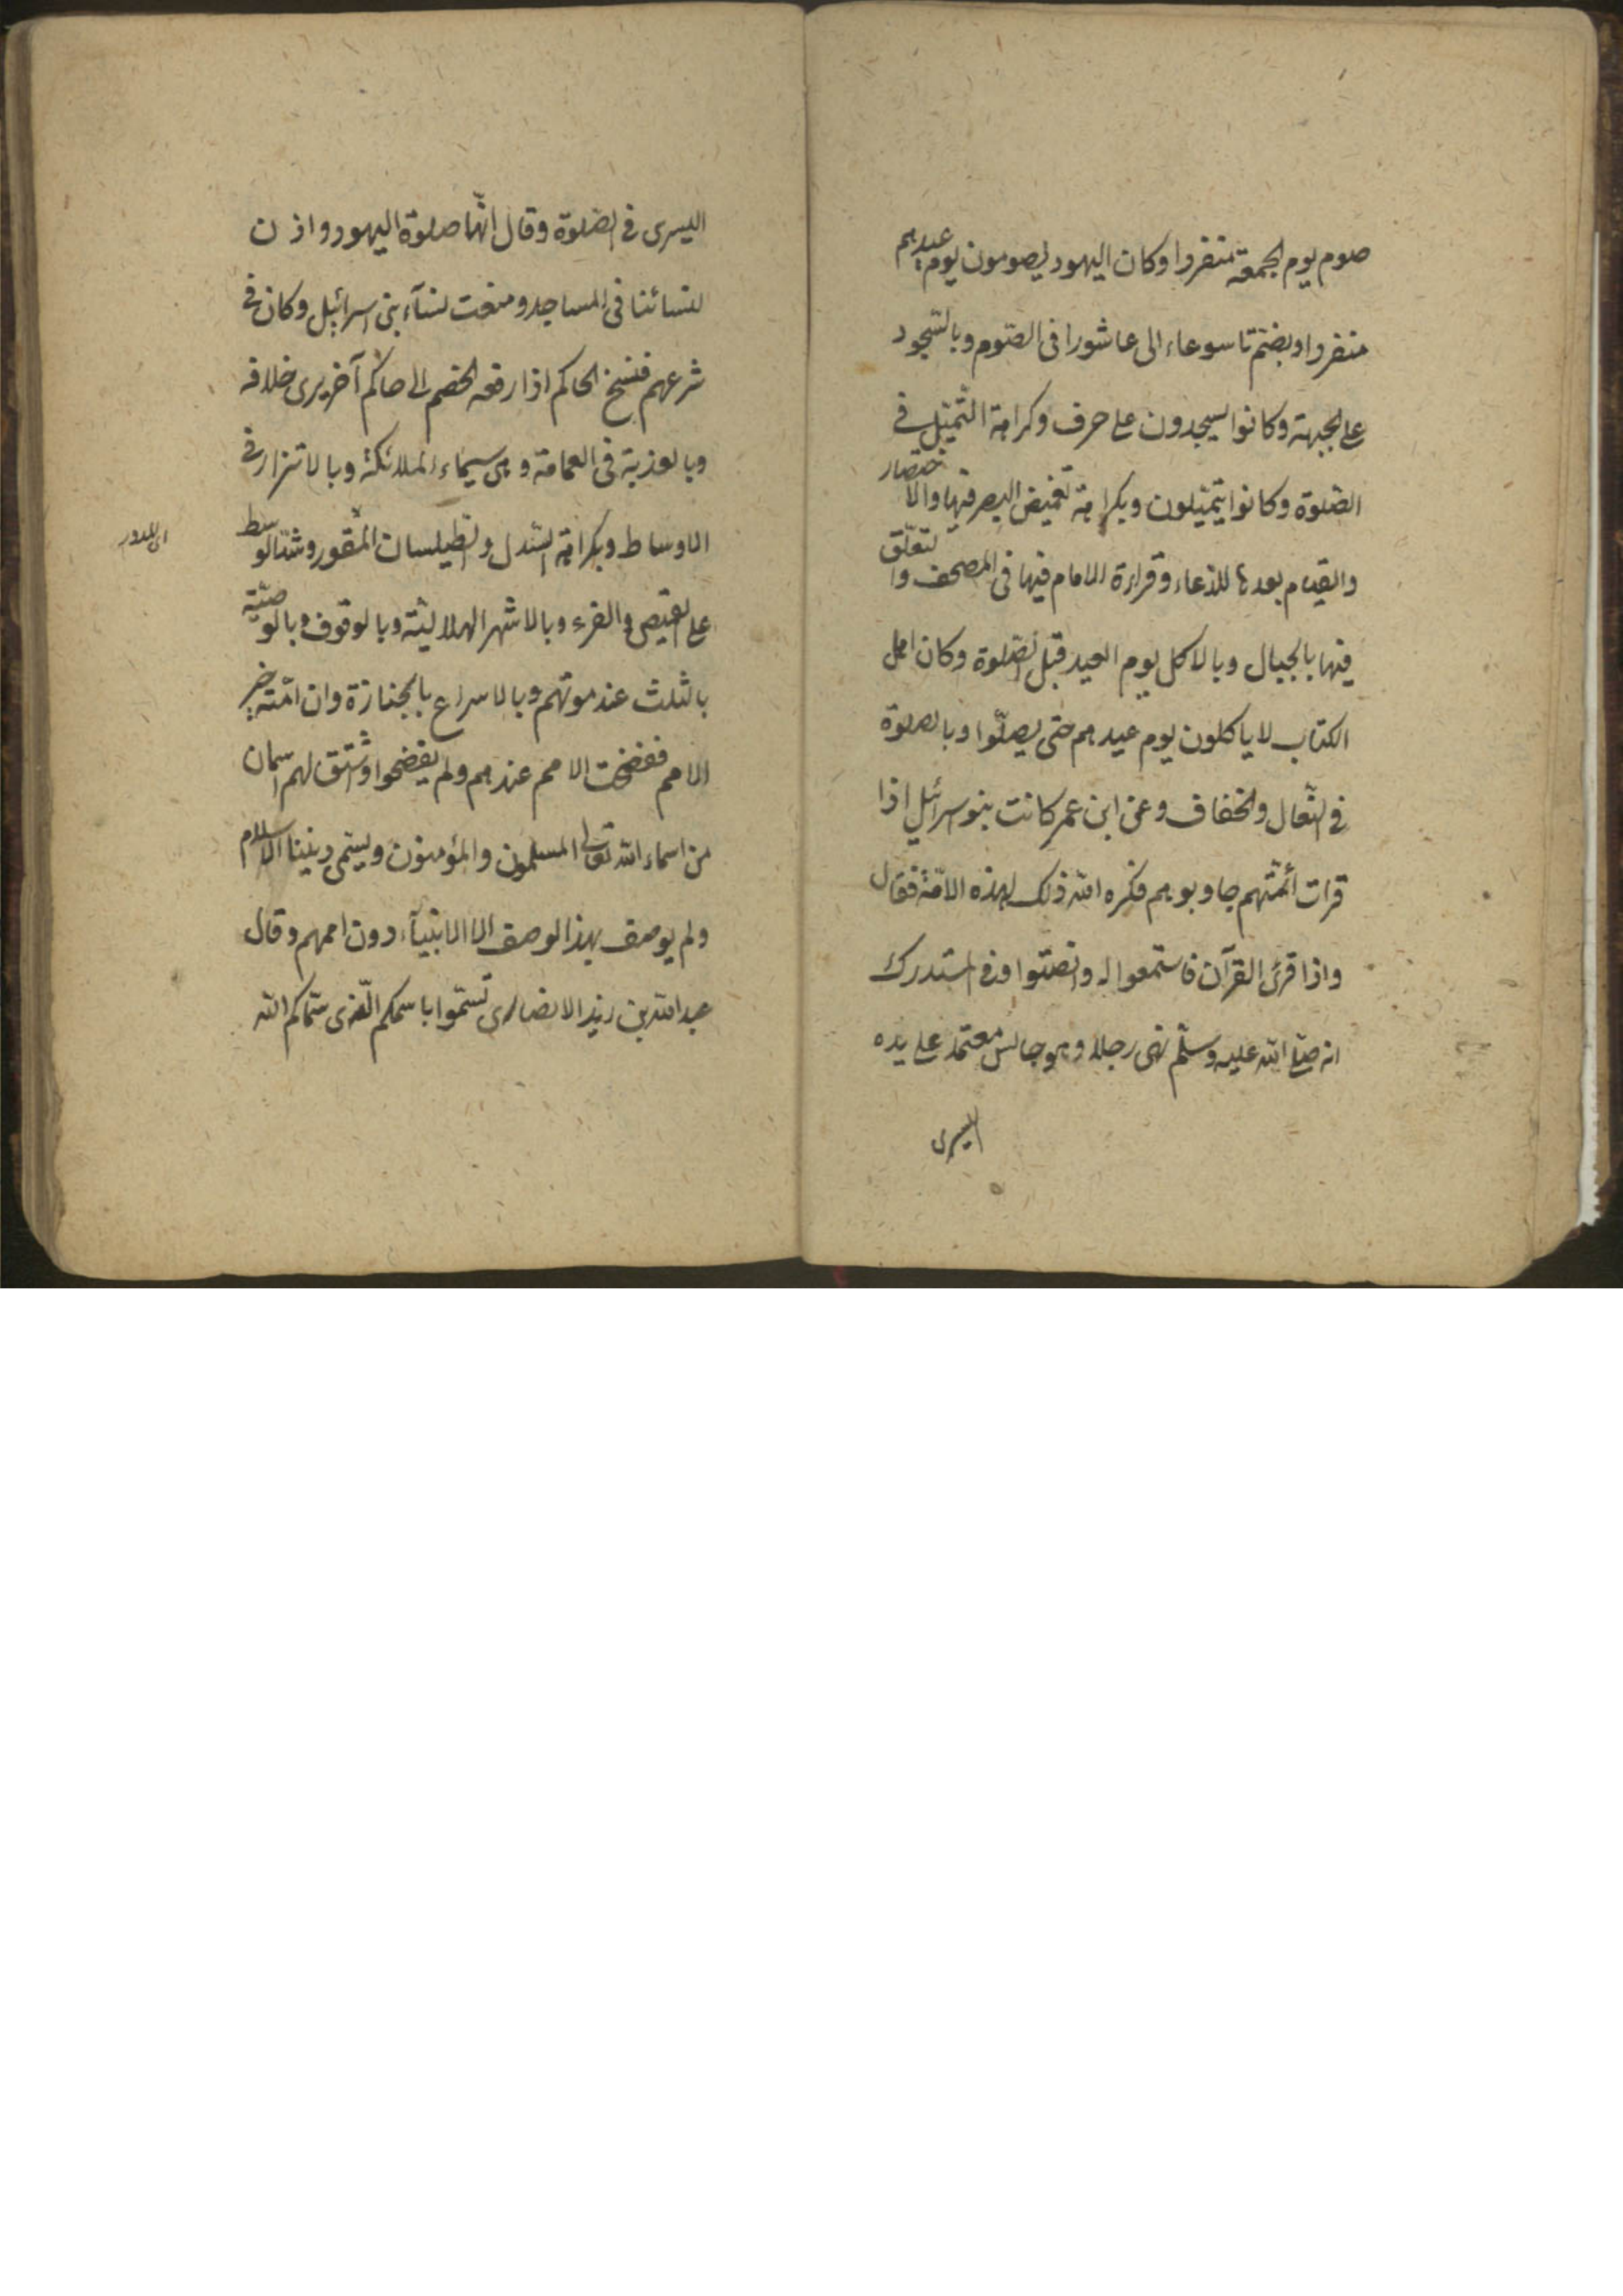 صوم يوم الجمعة منفردا وكان اليهود يصومون يوم عيدهم
منفردا وبضم تاسوعاء الى عاشورا فى الصّوم وبالسّجود
على الجبهة وكانوا يسجدون على حرف وكراهة التّميّل فى
الصّلوة وكانوا يتميّلون وبكراهة تغميض البصر فيها والاختصار
والقيام بعدها للدّعاء وقراءة الامام فيها فى المصحف والتعلّق
فيها بالحبال وبالاكل يوم العيد قبل الصّلوة وكان اهل
الكتاب لا ياكلون يوم عيدهم حتى يصلّوا وبالصلوة
فى النّعال والخفاف وعن ابن عمر كانت بنو اسرائيل اذا
قرات ائمّتهم جاوبوهم فكره الله ذلك لهذه الامّة فقال
واذا قرئ القرآن فاستمعوا له وانصتوا وفى المستدرك
انه صلّى الله عليه وسلّم نهى رجلا وهو جالس معتمد على يده
اليسرى
اليسرى فى الصّلوة وقال انّها صلوة اليهود واذن
لنسائنا فى المساجد ومنعت نسآء بنى اسرائيل وكان فى
شرعهم فسخ الحاكم اذا رفعه الخصم الى حاكم آخر يرى خلافه
وبالعذبة فى العمامة وهى سيماء الملائكة وبالاتزار فى
الاوساط وبكراهة السّدل والطيلسان المقور وشدّ الوسط
اى المدور
على القميص والقزع وبالاشهر الهلاليّة وبالوقوف وبالوصيّة
بالثلث عند موتهم وبالاسراع بالجنازة وان امّته خير
الامم ففضحت الامم عندهم ولم يفضحوا واشتق لهم اسمان
من اسماء الله تعالى المسلمون والمؤمنون ويسمّى ديننا الاسلام
ولم يوصف بهذا الوصف الا الانبيآء دون اممهم وقال
عبد الله بن زيد الانصارى تسمّوا باسمكم الّذى سمّاكم الله